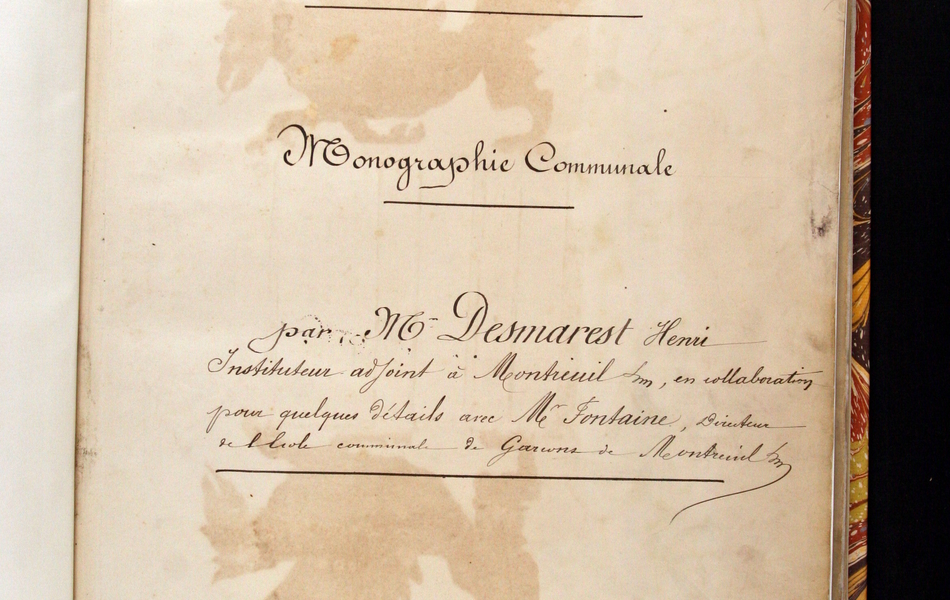 Monographie Communale
par Mr Desmarest Henri
Instituteur adjoint à Montreuil s/m, en collaboration
pour quelques détails avec Mr Fontaine, Directeur
de l'Ecole communale de Garçons de Montreuil s/m